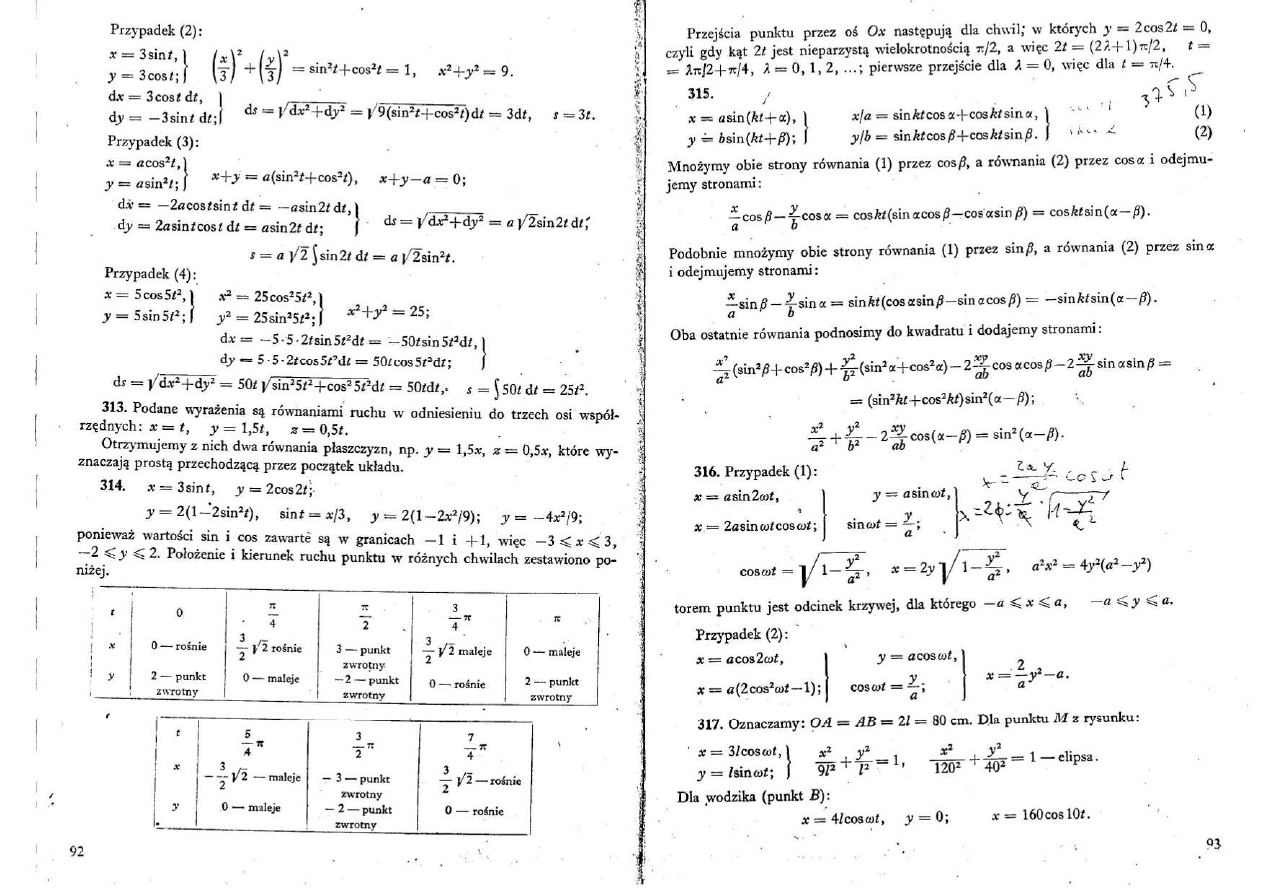 Przypadek (2):
x = 3sint, } (x/3)² + (y/3)² = sin²t+cos²t = 1, x²+y² = 9.
y = 3cost;
dx = 3cost dt, } ds = √dx²+dy² = √9(sin²t+cos²t)dt = 3dt, s = 3t.
dy = —3sint dt;
Przypadek (3):
x = acos²t, } x+y = a(sin²t+cos²t), x+y—a = 0;
y = asin²t;
dx = —2acostsint dt = —asin2t dt, } ds = √dx²+dy² = a√2sin2t dt,
dy = 2asintcost dt = asin2t dt;
s = a√2 ∫sin2t dt = a√2sin²t.
Przypadek (4):
x = 5cos5t², } x² = 25cos²5t², } x²+y² = 25;
y = 5sin5t²; y² = 25sin²5t²;
dx = —5·5·2tsin5t²dt = —50tsin5t²dt, }
dy = 5·5·2tcos5t²dt = 50tcos5t²dt;
ds = √dx²+dy² = 50t√sin²5t²+cos²5t²dt = 50tdt, s = ∫50t dt = 25t².
313. Podane wyrażenia są równaniami ruchu w odniesieniu do trzech osi współ-
rzędnych: x = t, y = 1,5t, z = 0,5t.
Otrzymujemy z nich dwa równania płaszczyzn, np. y = 1,5x, z = 0,5x, które wy-
znaczają prostą przechodzącą przez początek układu.
314. x = 3sint, y = 2cos2t;
y = 2(1—2sin²t), sint = x/3, y = 2(1—2x²/9); y = —4x²/9;
ponieważ wartości sin i cos zawarte są w granicach —1 i +1, więc —3 ⩽ x ⩽ 3,
—2 ⩽ y ⩽ 2. Położenie i kierunek ruchu punktu w różnych chwilach zestawiono po-
niżej.
t 0 π/4 π/2 3/4 π π
x 0 — rośnie 3/2 √2 rośnie 3 — punkt zwrotny 3/2 √2 maleje 0 — maleje
y 2 — punkt zwrotny 0 — maleje —2 — punkt zwrotny 0 — rośnie 2 — punkt zwrotny
t 5/4 π 3/2 π 7/4 π
x —3/2 √2 — maleje — 3 — punkt zwrotny 3/2 √2 — rośnie
y 0 — maleje — 2 — punkt zwrotny 0 — rośnie
92
Przejścia punktu przez oś Ox następują dla chwil; w których y = 2cos2t = 0,
czyli gdy kąt 2t jest nieparzystą wielokrotnością π/2, a więc 2t = (2λ+1)π/2, t =
= λπ/2+π/4, λ = 0, 1, 2, ...; pierwsze przejście dla λ = 0, więc dla t = π/4.
315.
x = asin(kt+α), } x/a = sinktcosα+cosktsinα, } (1)
y = bsin(kt+β); y/b = sinktcosβ+cosktsinβ. (2)
Mnożymy obie strony równania (1) przez cosβ, a równania (2) przez cosα i odejmu-
jemy stronami:
x/a cosβ — y/b cosα = coskt(sinαcosβ—cosαsinβ) = cosktsin(α—β).
Podobnie mnożymy obie strony równania (1) przez sinβ, a równania (2) przez sinα
i odejmujemy stronami:
x/a sinβ — y/b sinα = sinkt(cosαsinβ—sinαcosβ) = —sinktsin(α—β).
Oba ostatnie równania podnosimy do kwadratu i dodajemy stronami:
x²/a² (sin²β+cos²β)+ y²/b² (sin²α+cos²α)—2 xy/ab cosαcosβ—2 xy/ab sinαsinβ =
= (sin²kt+cos²kt)sin²(α—β);
x²/a² + y²/b² — 2 xy/ab cos(α—β) = sin²(α—β).
316. Przypadek (1):
x = asin2ωt, } y = asinωt, }
x = 2asinωtcosωt; sinωt = y/a;
cosωt = √1— y²/a², x = 2y√1— y²/a², a²x² = 4y²(a²—y²)
torem punktu jest odcinek krzywej, dla którego —a ⩽ x ⩽ a, —a ⩽ y ⩽ a.
Przypadek (2):
x = acos2ωt, } y = acosωt, } x = 2/a y²—a.
x = a(2cos²ωt—1); cosωt = y/a;
317. Oznaczamy: OA = AB = 2l = 80 cm. Dla punktu M z rysunku:
x = 3lcosωt, } x²/9l² + y²/l² = 1, x²/120² + y²/40² = 1 — elipsa.
y = lsinωt;
Dla wodzika (punkt B):
x = 4lcosωt, y = 0; x = 160cos10t.
93